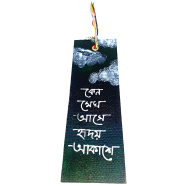 কেন
মেঘ
আসে
হৃদয়
আকাশে